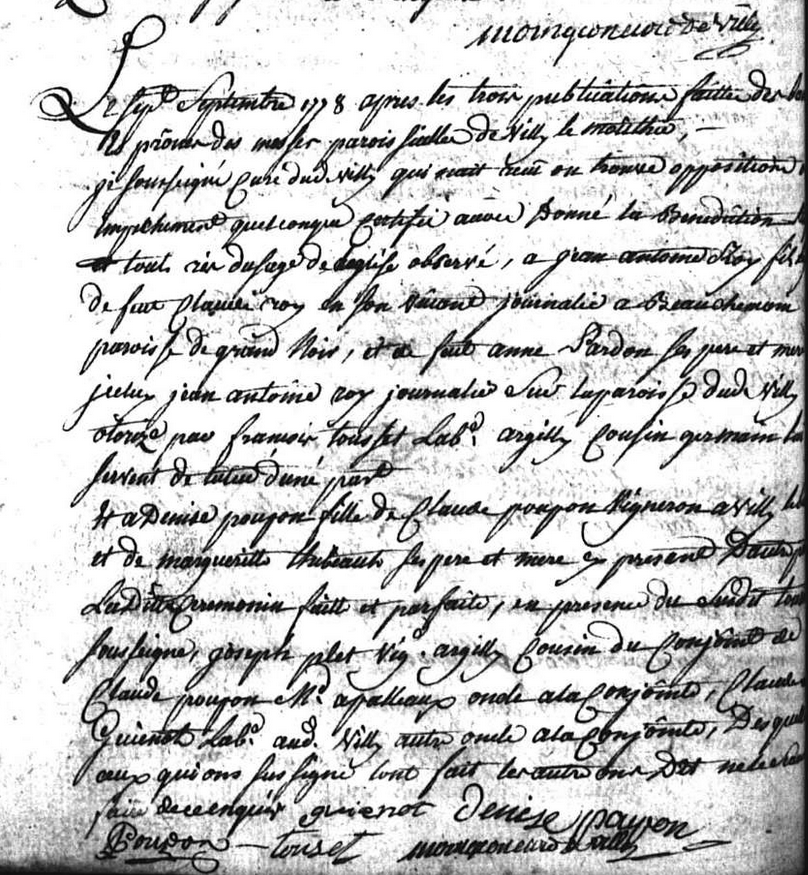 moingeon curé de Villy
Le sept Septembre 1778 apres les trois publications faittes des
prônes des messes paroissialles de Villy le
je soussigné Curé dud. villy qui nait recû ou trouvé opposition
Empechement quelconque Certifie avoir Donné la Benediction
et tout usage de leglise observé, a jean antoine Roy fils
de feu Claude roy en son vivant journalié a Beauchemin
paroisse de grand Noir, et de feüe anne Pardon ses pere et mere
jcelui jean antoine roy journalié Sur la paroisse dud. Villy
otorizé par francois tousset Labr. argilly Cousin germain lui
servent de tuteur d'une part
Et a Denise poupon fille de Claude poupon Vigneron a Villy
et de margueritte thibeault ses pere et mere present D'autre
La Ditte Ceremonie faitte et parfaite, en presence du Susdit
soussigné, joseph plet Vig. argilly Cousin du Conjoint de
Claude poupon Md. a palleaux oncle a la Conjointe, Claude
Guienot Labr. aud. Villy autre oncle a la Conjointe, Desquels
ceux qui ons sus signé lont fait les autre ons Dit ne le
faire de ce enquis guienot denise poupon
Poupon touset moingeon curé de villy